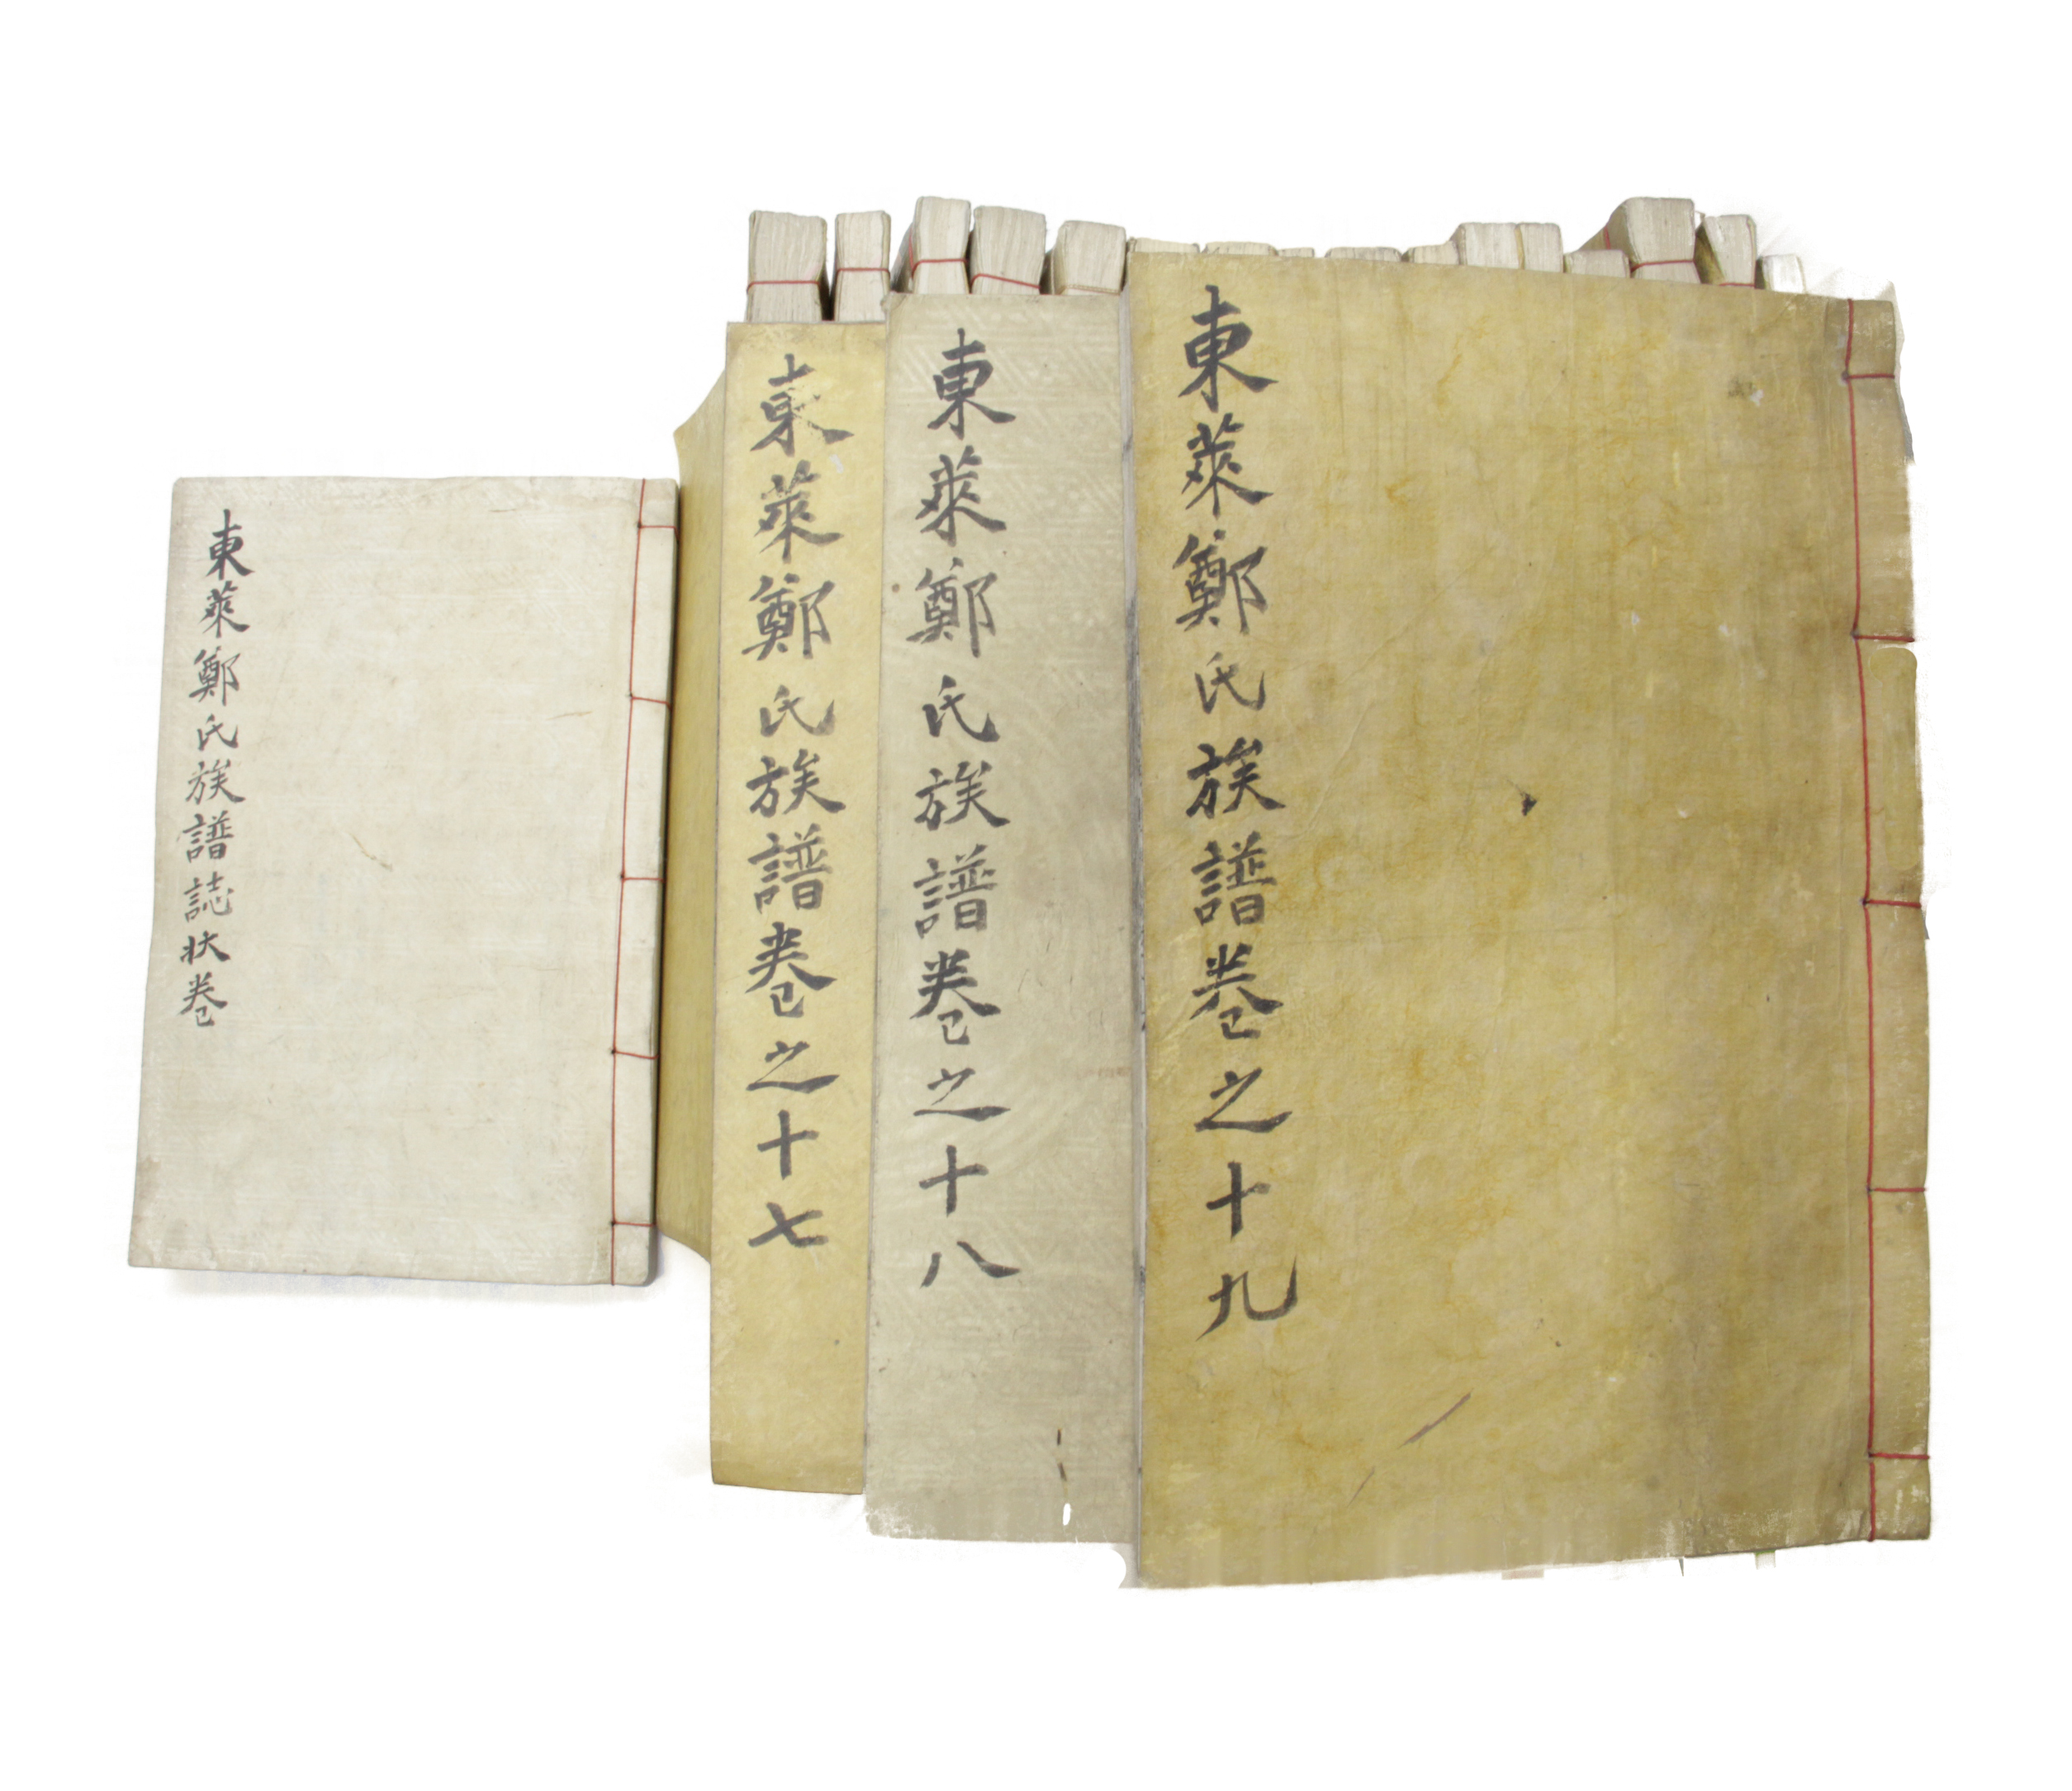 東萊鄭氏族譜誌狀卷
東萊鄭氏族譜卷之十七
東萊鄭氏族譜卷之十八
東萊鄭氏族譜卷之十九